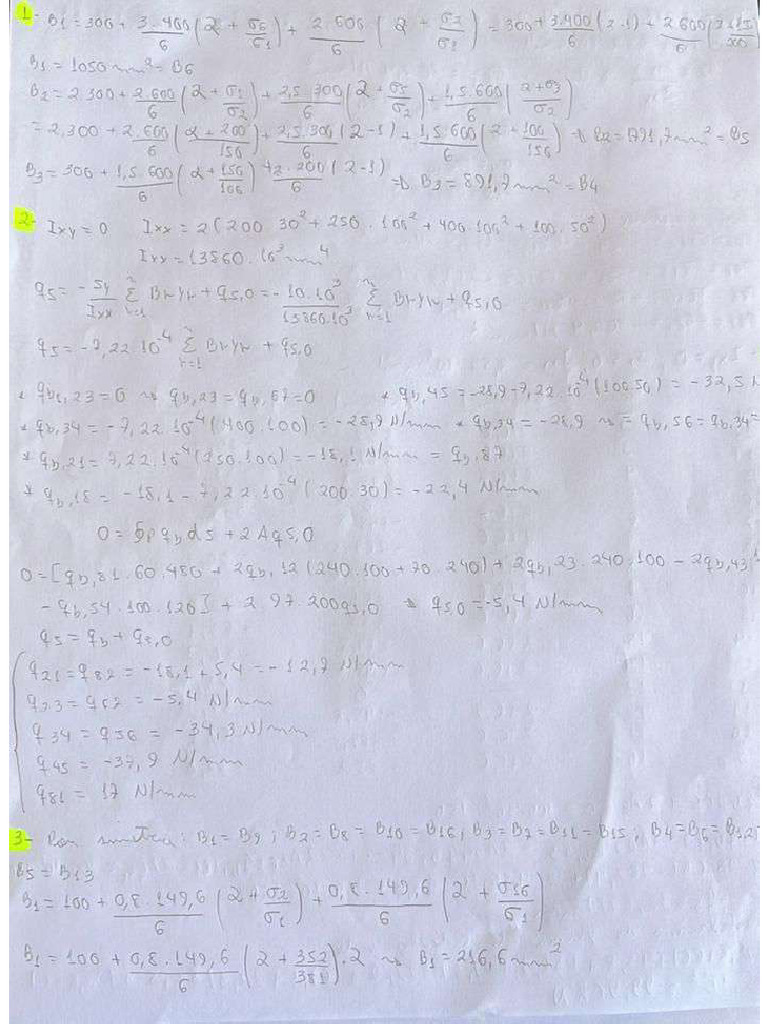 1- B1 = 300 + 3.400/6 (2 + σ6/σ1) + 2.600/6 (2 + σ2/σ1) = 300 + 3.400/6 (2-1) + 2.600/6
B1 = 1050 mm² = B6
B2 = 2.300 + 2.600/6 (2 + σ1/σ2) + 2,5.300/6 (2 + σ5/σ2) + 1,5.600/6 (2+σ3/σ2)
= 2.300 + 2.600/6 (2 + 200/150) + 2,5.300/6 (2-1) + 1,5.600/6 (2 + 100/150) ⇒ B2 = 1791,7 mm² = B5
B3 = 300 + 1,5.600/6 (2 + 150/100) + 2.200/6 (2-1) ⇒ B3 = 891,7 mm² = B4
2- Ixy = 0 Ixx = 2(200.30² + 250.100² + 400.100² + 100.50²)
Ixx = 13860.10³ mm⁴
qs = -Sy/Ixx Σ Br yr + qs,0 = -10.10³/13860.10³ Σ Br yr + qs,0
qs = -7,22.10⁻⁴ Σ Br yr + qs,0
* qb,23 = 0 ⇝ qb,23 = qb,67 = 0 * qb,45 = -28,9 - 7,22.10⁻⁴(100.50) = -32,5 N
* qb,34 = -7,22.10⁻⁴(400.100) = -28,9 N/mm * qb,34 = -28,9 ⇝ = qb,56 = qb,34 =
* qb,21 = 7,22.10⁻⁴(250.100) = -18,1 N/mm = qb,87
* qb,18 = -18,1 - 7,22.10⁻⁴(200.30) = -22,4 N/mm
0 = ∮p qb ds + 2A qs,0
0 = [qb,81.60.480 + 2qb,12(240.100 + 70.240) + 2qb,23.240.100 - 2qb,43
- qb,54.100.120] + 2.97.200 qs,0 qs,0 = -5,4 N/mm
qs = qb + qs,0
q21 = q87 = -18,1 + 5,4 = -12,7 N/mm
q23 = q67 = -5,4 N/mm
q34 = q56 = -34,3 N/mm
q45 = -37,9 N/mm
q81 = 17 N/mm
3- Por simetria: B1 = B9; B2 = B8 = B10 = B16; B3 = B7 = B11 = B15; B4 = B6 = B12 =
B5 = B13
B1 = 100 + 0,8.149,6/6 (2 + σ2/σ1) + 0,8.149,6/6 (2 + σ16/σ1)
B1 = 100 + 0,8.149,6/6 (2 + 352/381).2 ⇝ B1 = 216,6 mm²